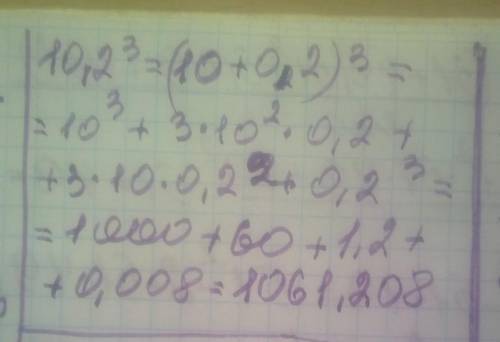 10,2³ = (10 + 0,2)³ =
= 10³ + 3·10²·0,2 +
+ 3·10·0,2² + 0,2³ =
= 1000 + 60 + 1,2 +
+ 0,008 = 1061,208